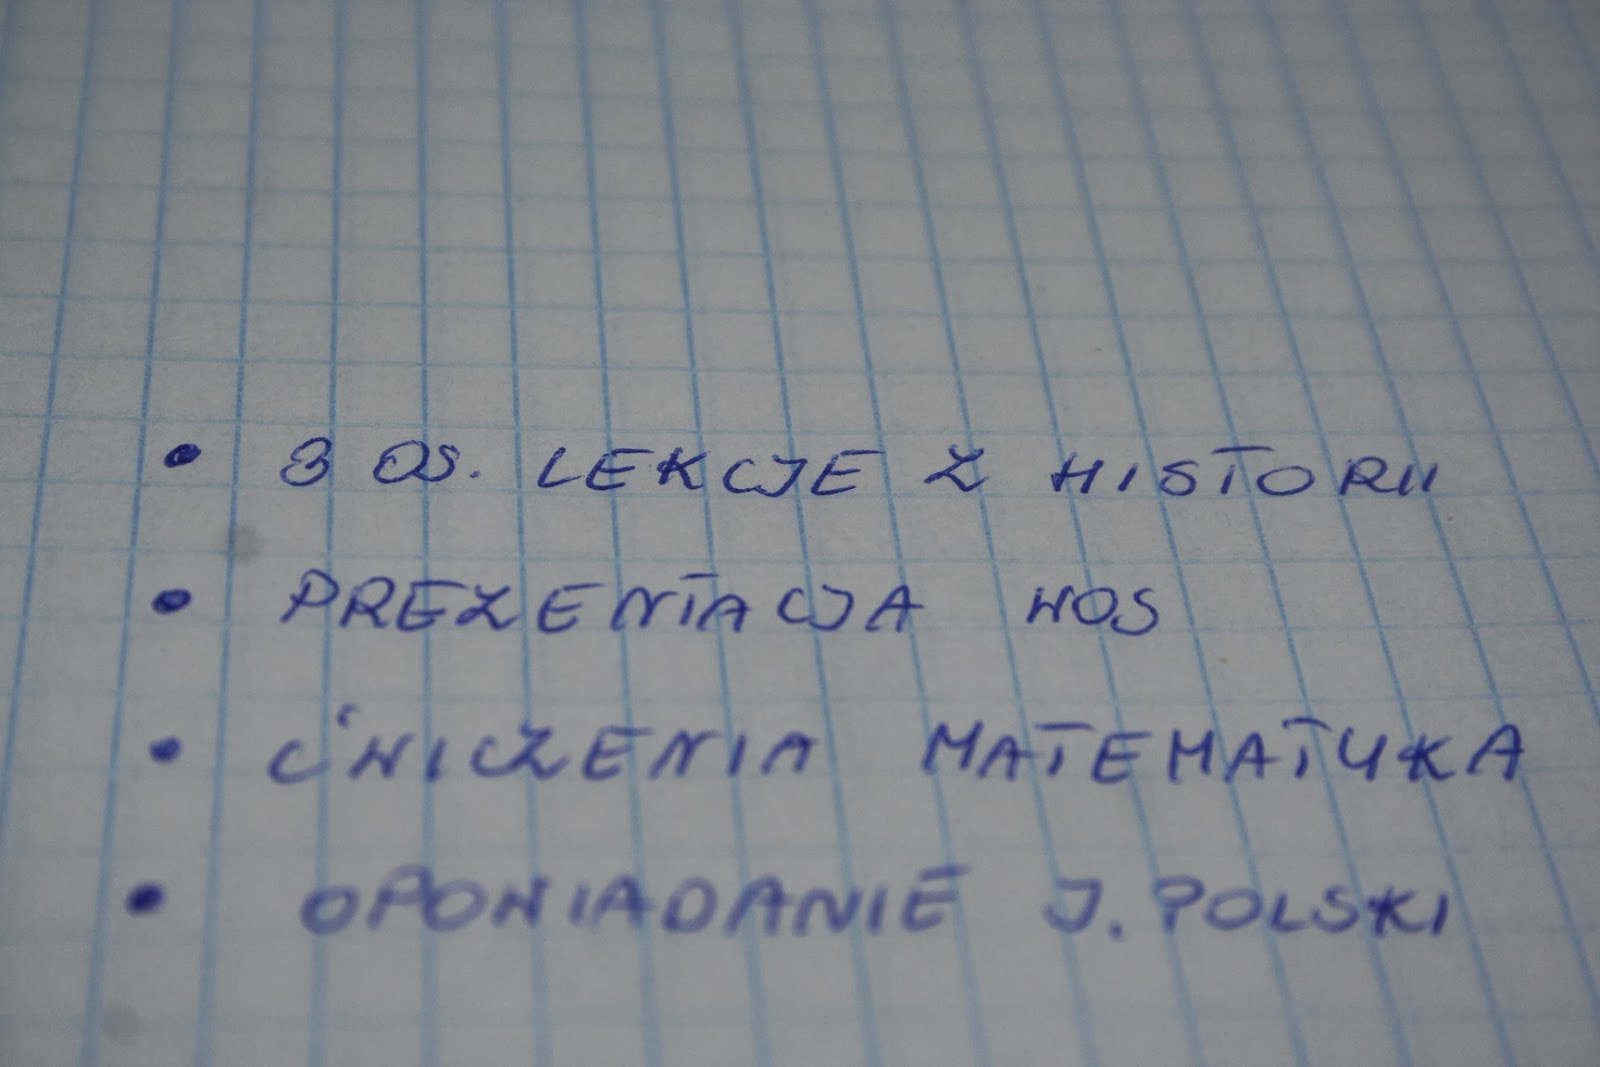 • 3 OS. LEKCJE Z HISTORII
• PREZENTACJA WOS
• ĆWICZENIA MATEMATYKA
• OPOWIADANIE J. POLSKI